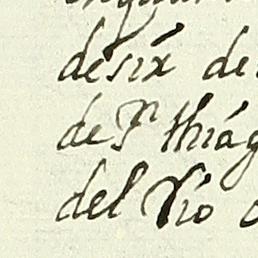 desix de
de Sⁿ thiág
del Rio